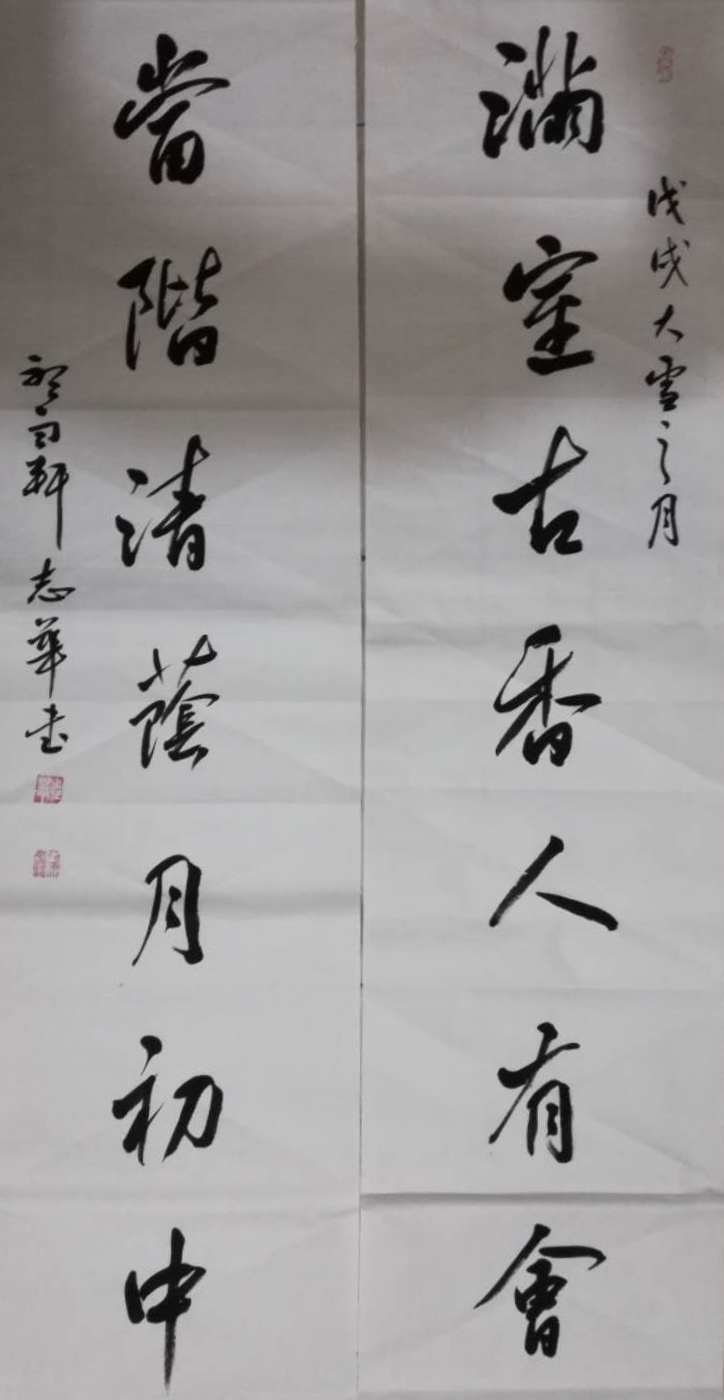 戊戌大雪之月
滿室古香人有會
當階清蔭月初中
軒志華書